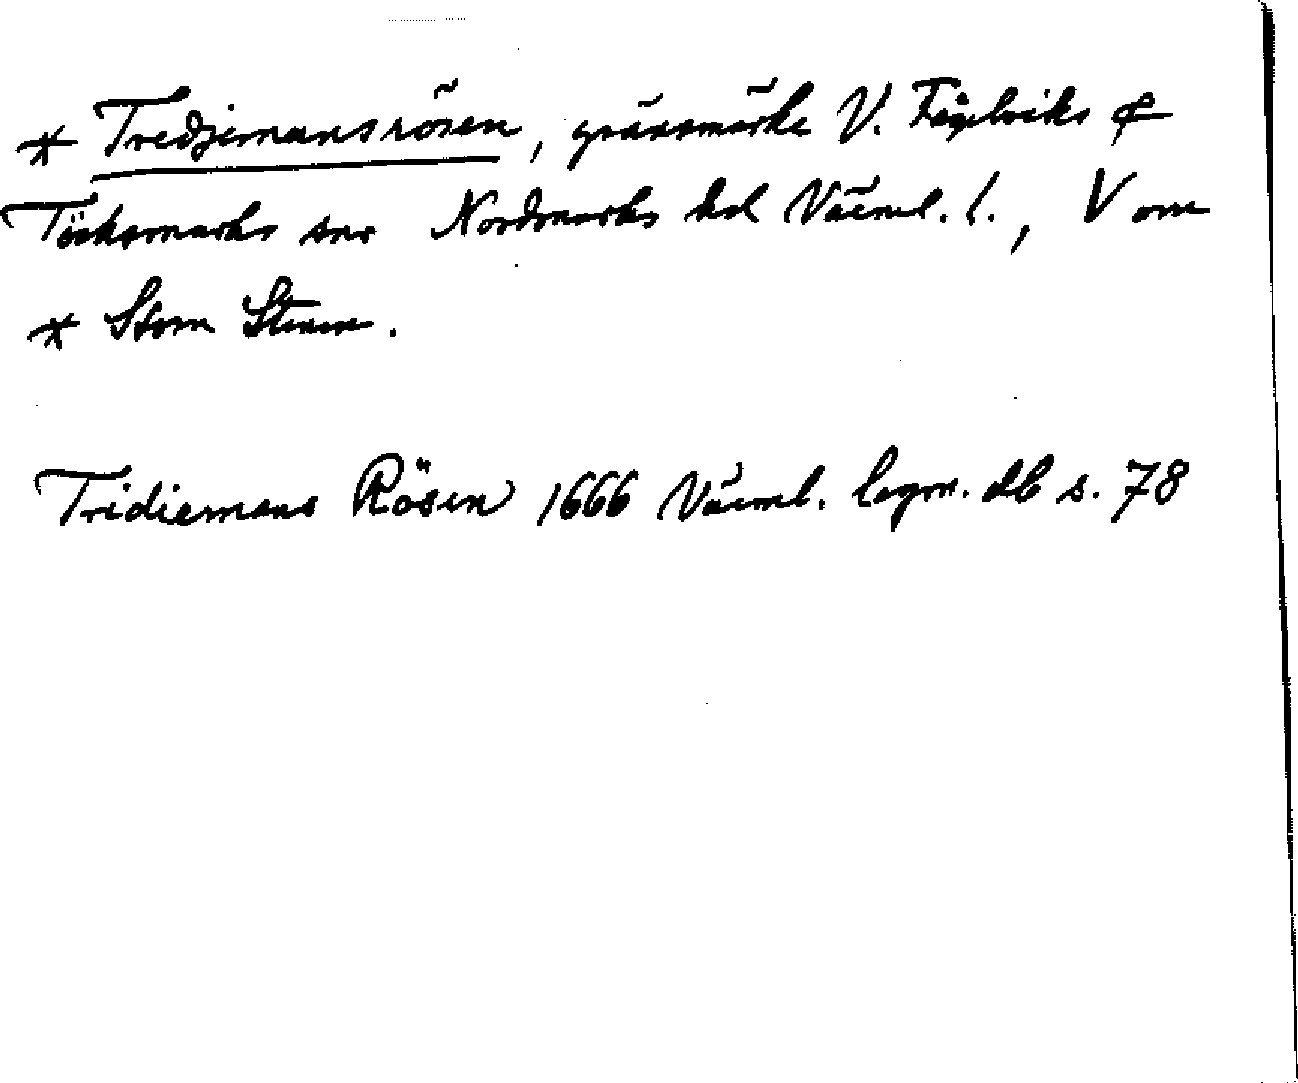 * Tredjemansrösen, gränsmärke V. Fågelviks &
Töcksmarks snr Nordmarks hd Värml. l., V om
* Stora Stenen.
Tridiemans Rösen 1666 Värml. lagm. db s. 78